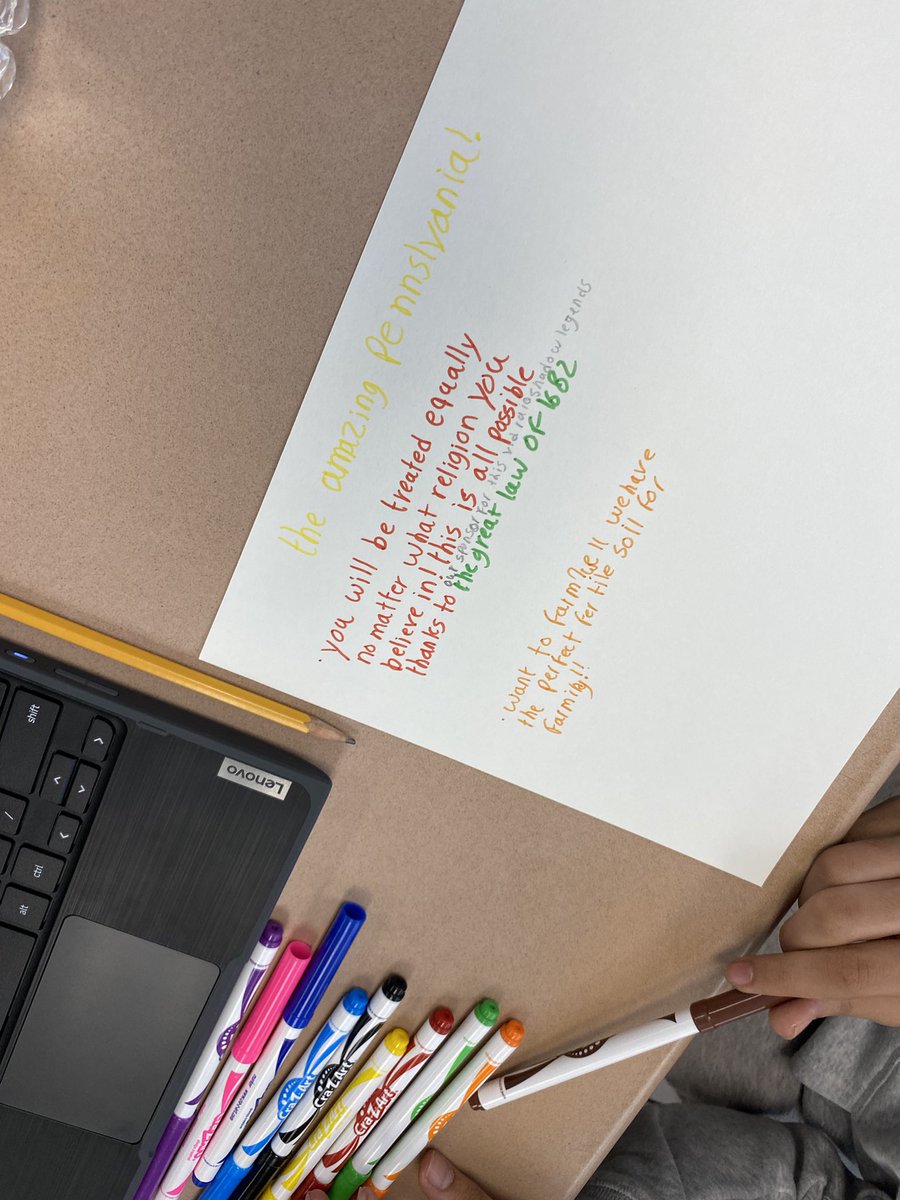 the amazing Pennslvania!
· you will be treated equally
no matter what religion you
believe in! this is all possible
thanks to our sponsor for this vid raid shadow legends
the great law of 1682
· want to farm? well we have
the perfect fertile soil for
farming!!
Lenovo
shift
/
ctrl
alt
Cra-Z-Art
Cra-Z-Art
Cra-Z-Art
Cra-Z-Art